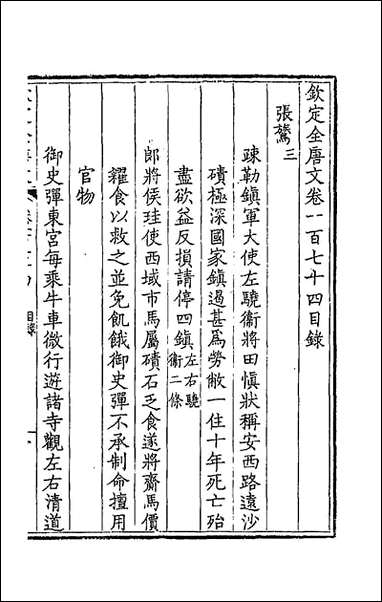 欽定全唐文卷一百七十四目錄
張鷟三
疎勒鎭軍大使左驍衞將田愼狀稱安西路遠沙
磧極深國家鎭遏甚爲勞敝一住十年死亡殆
盡欲益反損請停四鎭左右驍衞二條
郎將侯珪使西域市馬屬磧石乏食遂將齋馬價
糴食以救之並免飢餓御史彈不承制命擅用
官物
御史彈東宮每乘牛車微行遊諸寺觀左右清道
目錄